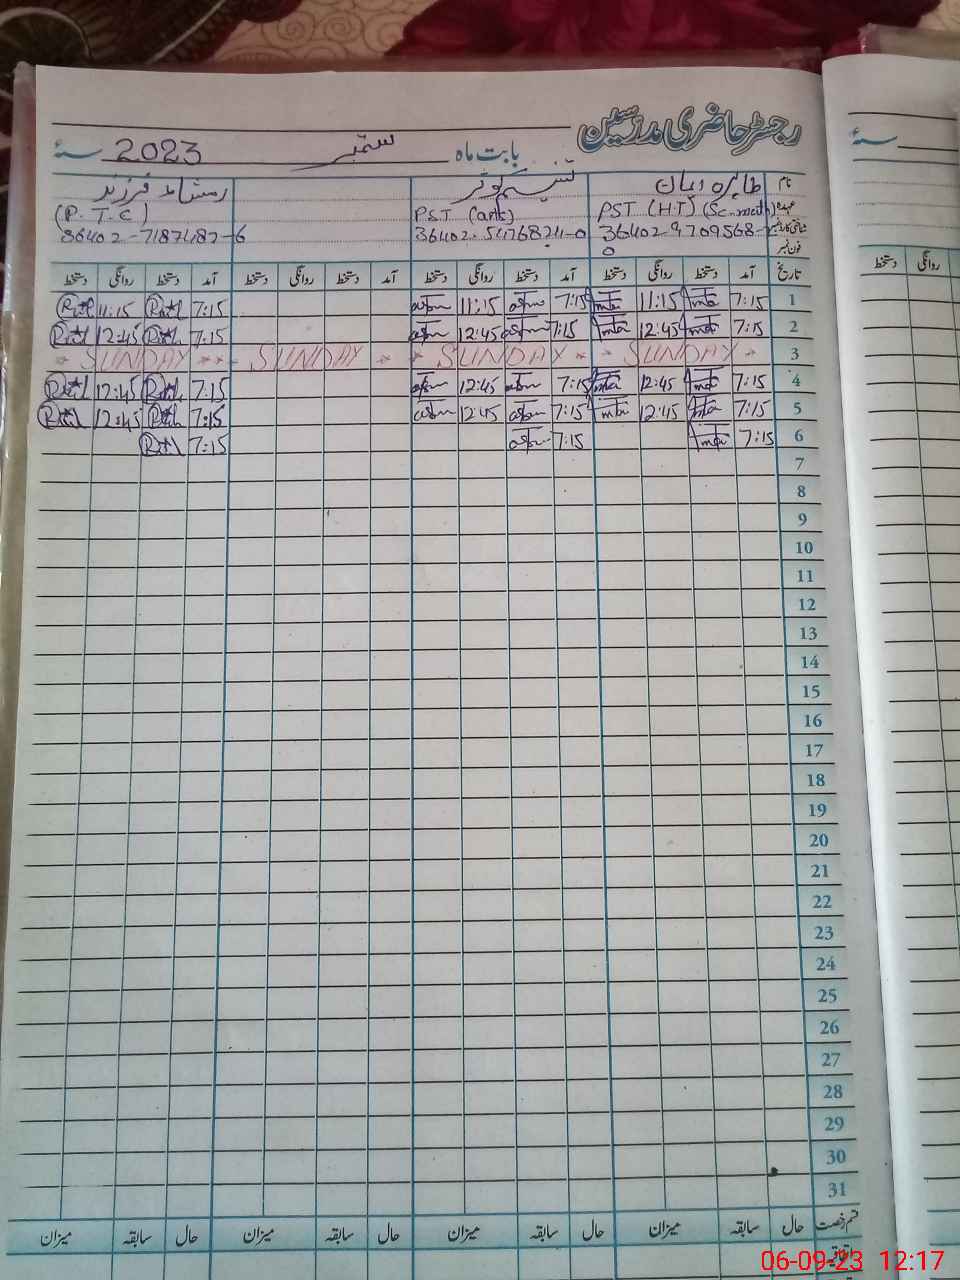 رجسٹر حاضری مدرسین
بابت ماہ ستمبر 2023 سنۂ
نام طاہرہ تسنیم کوثر
عہدہ PST (H.T) (Sc.math) PST (arts) (P.T.C)
شناختی کارڈ نمبر 36402-9709568- 36402-5476824-0 36402-7187487-6
فون نمبر 0
تاریخ آمد دستخط روانگی دستخط آمد دستخط روانگی دستخط آمد دستخط روانگی دستخط آمد دستخط روانگی دستخط
1 7:15 11:15 7:15 11:15 7:15 11:15
2 7:15 12:45 7:15 12:45 7:15 12:45
3 SUNDAY SUNDAY SUNDAY SUNDAY
4 7:15 12:45 7:15 12:45 7:15 12:45
5 7:15 12:45 7:15 12:45 7:15 12:45
6 7:15 7:15 7:15
7
8
9
10
11
12
13
14
15
16
17
18
19
20
21
22
23
24
25
26
27
28
29
30
31
قسم رخصت حال سابقہ میزان حال سابقہ میزان حال سابقہ میزان حال سابقہ میزان
اتفاقیہ
سنۂ
روانگی دستخط
06-09-23 12:17